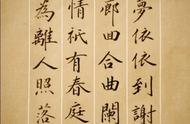 夢依依到謝
郎回合曲闌
情祇有春庭
為離人照落